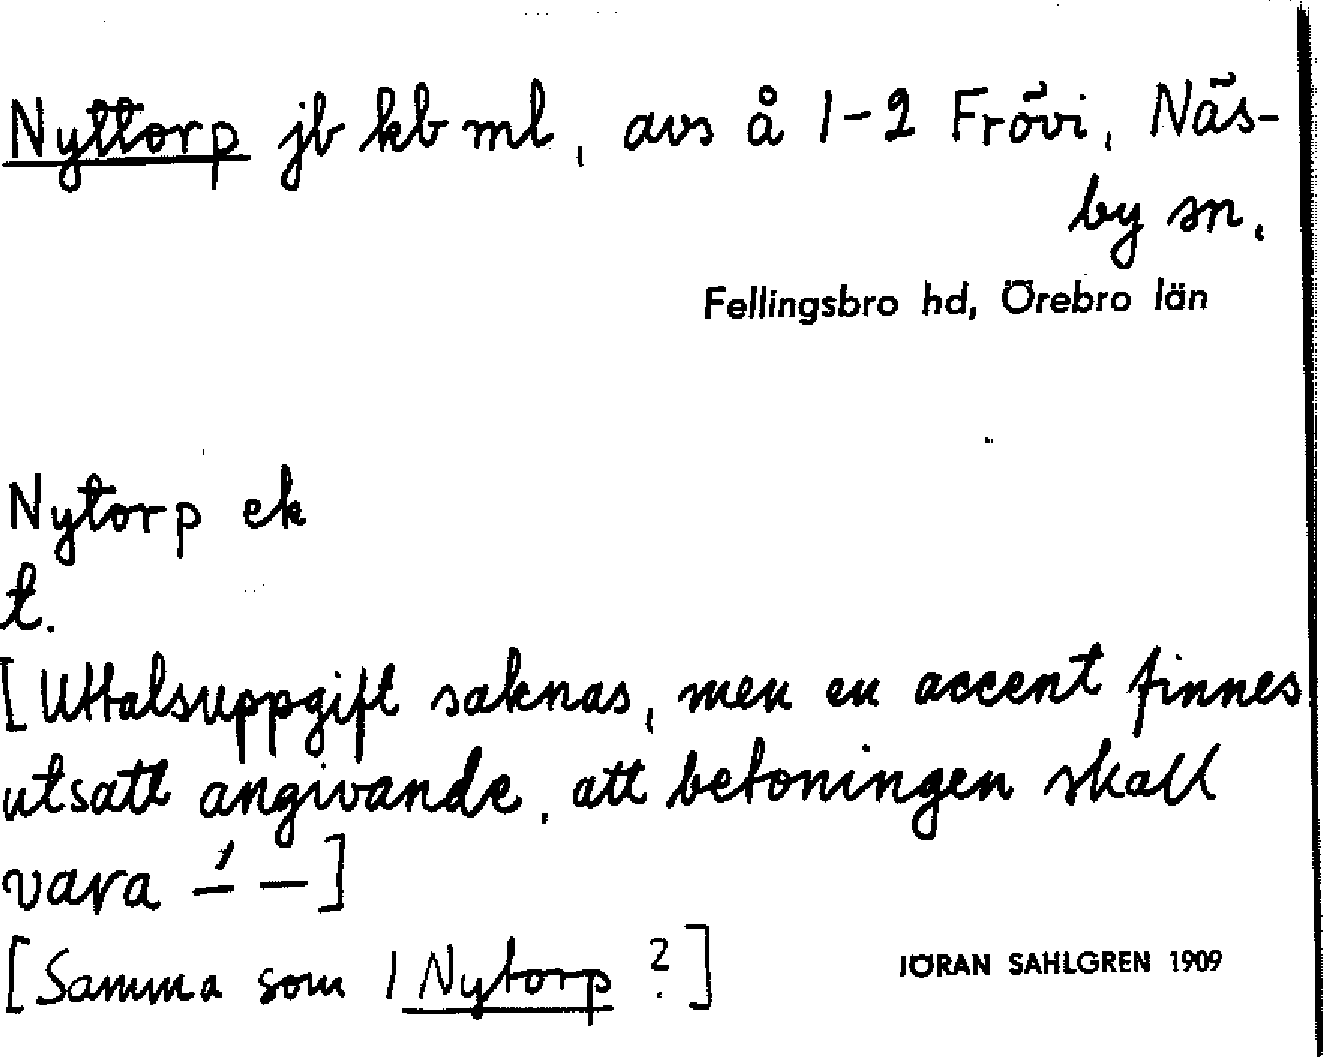 Nyttorp jb kb ml, avs å 1-2 Frövi, Näs-
by sn.
Fellingsbro hd, Örebro län
Nytorp ek
t.
[Uttalsuppgift saknas, men en accent finnes
utsatt angivande, att betoningen skall
vara –́ –]
[Samma som 1 Nytorp ?]
JÖRAN SAHLGREN 1909